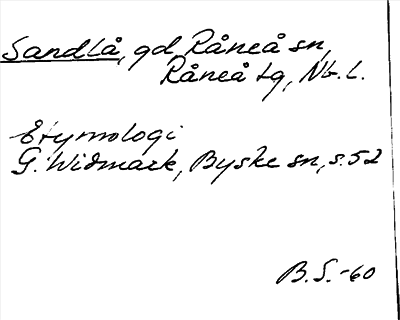 Sandlå, gd, Råneå sn,
Råneå tg, Nb. L.
Etymologi
G. Widmark, Byske sn, s. 52
B.S.-60